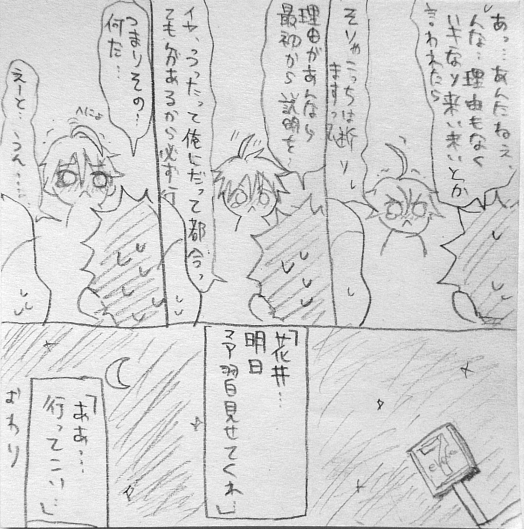 あっ…あんたねぇ、
んな…理由もなく
いきなり来い来いとか
言われたら
そりゃこっちは断り
ますって
理由があんなら
最初から説明を…
イヤ、つったって俺にだって都合っ
ても んあるから必ず行
つまりその…
何だ…
へにょ
えーと つん……
「花井…
明日
マア習自見せてくれ」
「ああ…
行ってこい…」
おわり